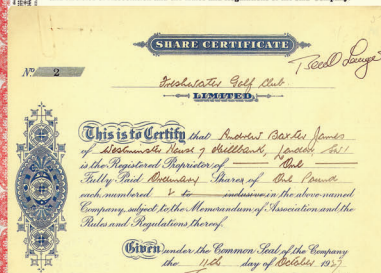 SHARE CERTIFICATE
No 2
Freshwater Golf Club
LIMITED
This is to Certify that Andrew Baxter James
of Westminster House, Millbank, London S.W.1
is the Registered Proprietor of One
Fully Paid Ordinary Shares of One Pound
each, numbered 2 to inclusive in the above-named
Company, subject to the Memorandum of Association and the
Rules and Regulations thereof.
Given under the Common Seal of the Company
the 11th day of October 19